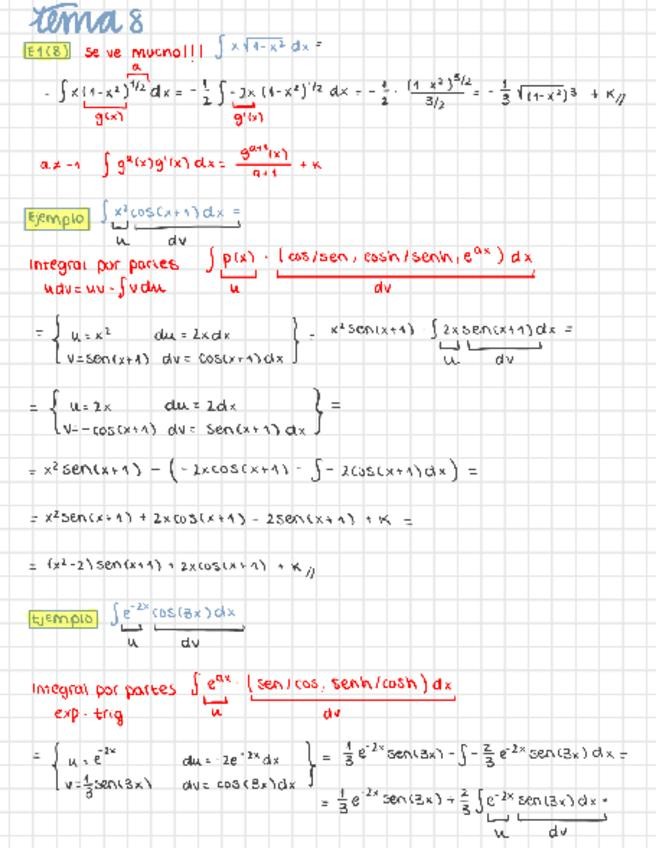 tema 8
E1(8) se ve mucho!!! ∫ x√1-x² dx =
- ∫ x(1-x²)^1/2 dx = -1/2 ∫ -2x (1-x²)^1/2 dx = -1/2 · (1-x²)^3/2 / 3/2 = -1/3 √(1-x²)³ + K//
a
g(x) g'(x)
a ≠ -1 ∫ g^a(x)g'(x) dx = g^a+1(x) / a+1 + K
Ejemplo ∫ x² cos(x+1) dx =
u dv
Integral por partes ∫ p(x) · (cos/sen, cosh/senh, e^ax) dx
udv = uv - ∫ v du u dv
= { u = x² du = 2x dx } = x² sen(x+1) - ∫ 2x sen(x+1) dx =
v = sen(x+1) dv = cos(x+1) dx u dv
= { u = 2x du = 2dx } =
v = -cos(x+1) dv = sen(x+1) dx
= x² sen(x+1) - (-2x cos(x+1) - ∫ -2cos(x+1) dx) =
= x² sen(x+1) + 2x cos(x+1) - 2sen(x+1) + K =
= (x²-2) sen(x+1) + 2x cos(x+1) + K //
Ejemplo ∫ e^-2x cos(3x) dx
u dv
Integral por partes ∫ e^ax · (sen/cos, senh/cosh) dx
exp - trig u dv
= { u = e^-2x du = -2e^-2x dx } = 1/3 e^-2x sen(3x) - ∫ -2/3 e^-2x sen(3x) dx =
v = 1/3 sen(3x) dv = cos(3x) dx
= 1/3 e^-2x sen(3x) + 2/3 ∫ e^-2x sen(3x) dx =
u dv